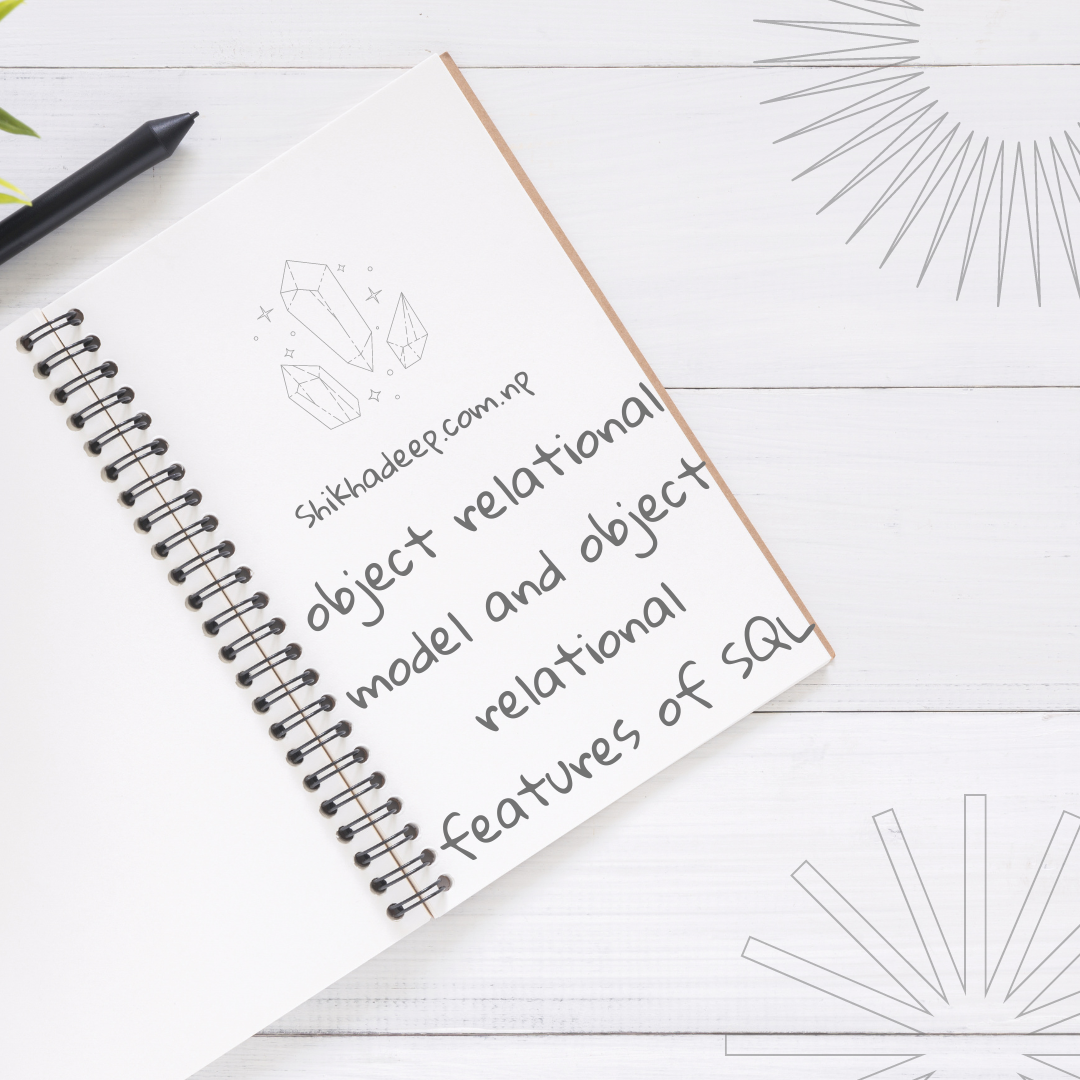 Shikhadeep.com.np
object relational
model and object
relational
features of SQL